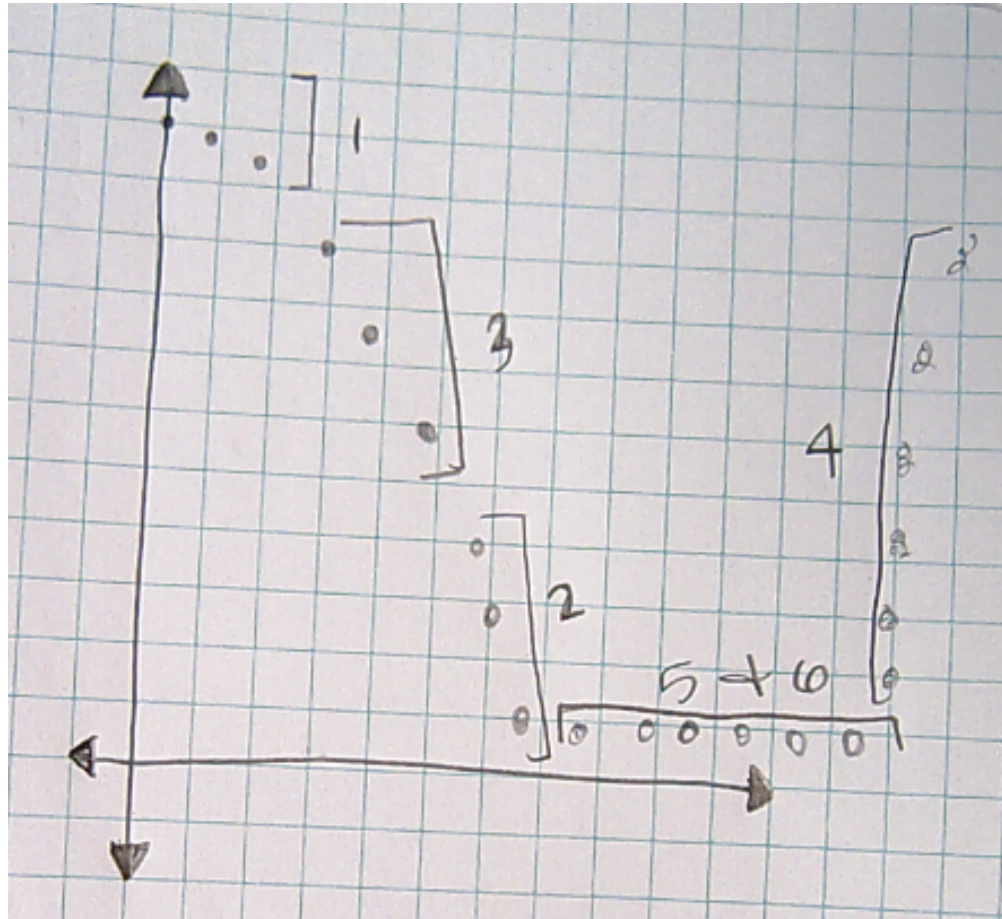 1
3
4
2
5 + 6